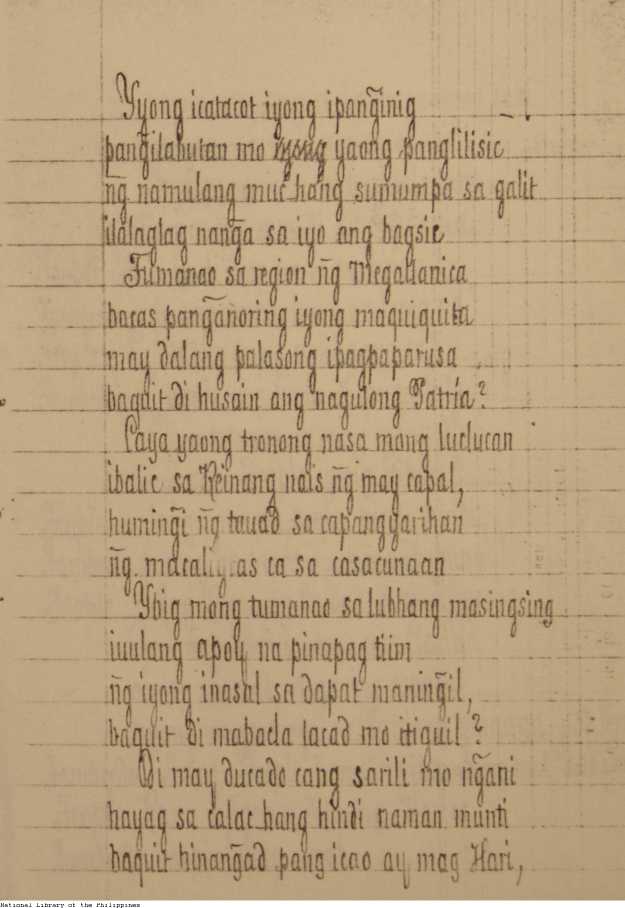 Yyong icatacot iyong ipang̃inig
pang̃ilabutan mo yaong panglilisic
n͠g namulang muc-hang sumumpa sa galit
ilalaglag nang̃a sa iyo ang bagsic
Tumanao sa region n͠g Megallanica
bacas pang̃anoring iyong maquiquita
may dalang palasong ipagpaparusa
baquit di husain ang nagulong Patria?
Caya yaong tronong nasa mong luclucan
ibalic sa Reinang nais n͠g may capal,
huming̃i n͠g tauad sa capanggarihan
n͠g macaligtas ca sa casacunaan
Ybig mong tumanao sa lubhang masingsing
iuulang apoy na pinapag tiim
n͠g iyong inasal sa dapat maning̃il,
baquit di mabacla lacad mo itiguil?
Di may ducado cang sarili mo ng̃ani
hayag sa calac-hang hindi naman munti
baquit hinang̃ad pang icao ay mag Hari,
National Library of the Philippines